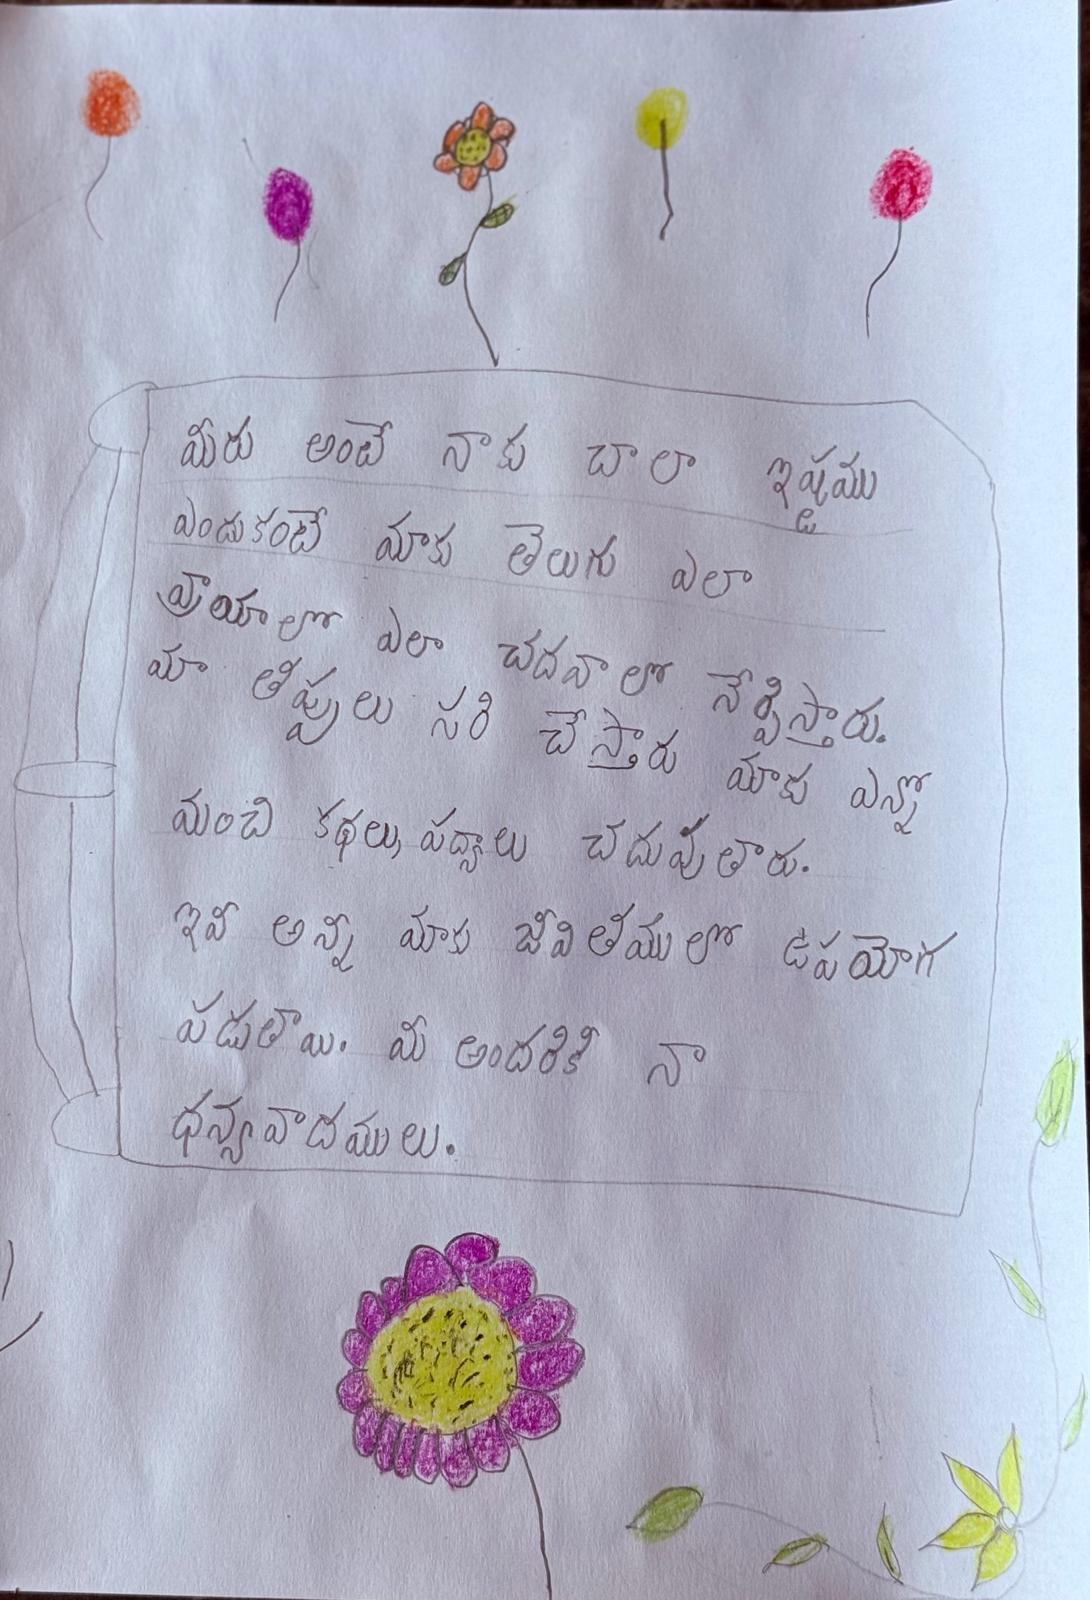 మీరు అంటే నాకు చాలా ఇష్టము
ఎందుకంటే మాకు తెలుగు ఎలా
వ్రాయాలో ఎలా చదవాలో నేర్పిస్తారు.
మా తప్పులు సరి చేస్తారు మాకు ఎన్నో
మంచి కథలు, పద్యాలు చదువుతారు.
ఇవి అన్ని మాకు జీవితములో ఉపయోగ
పడుతాయి. మీ అందరికీ నా
ధన్యవాదములు.